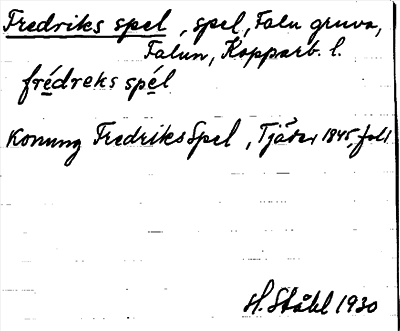 Fredriks spel, spel, Falu gruva,
Falun, Kopparb. l.
frédreks spél
Konung Fredriks Spel, 1845, fol1
H. Ståhl 1930